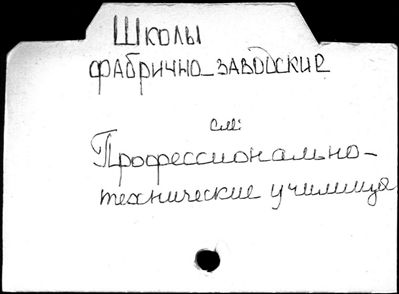 Школы
фабрично-заводские
см:
Профессионально-
технические училища